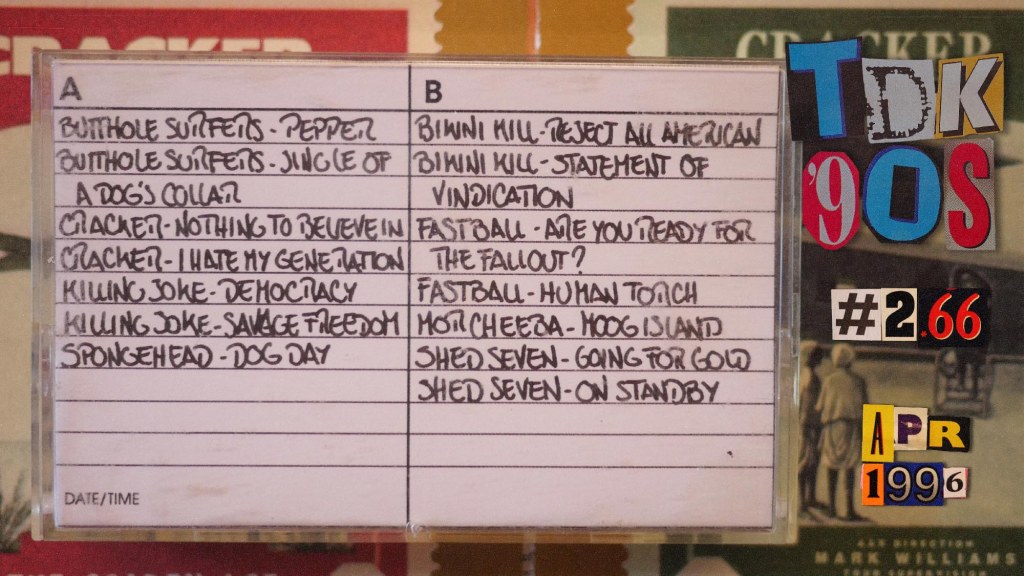 CRACKER
CRACKER
A
BUTTHOLE SURFERS - PEPPER
BUTTHOLE SURFERS - JINGLE OF
A DOG'S COLLAR
CRACKER - NOTHING TO BELIEVE IN
CRACKER - I HATE MY GENERATION
KILLING JOKE - DEMOCRACY
KILLING JOKE - SAVAGE FREEDOM
SPONGEHEAD - DOG DAY
DATE/TIME
B
BIKINI KILL - REJECT ALL AMERICAN
BIKINI KILL - STATEMENT OF
VINDICATION
FASTBALL - ARE YOU READY FOR
THE FALLOUT?
FASTBALL - HUMAN TORCH
MORCHEEBA - MOOG ISLAND
SHED SEVEN - GOING FOR GOLD
SHED SEVEN - ON STANDBY
TDK
'90S
#2.66
APR
1996
A&R DIRECTION
MARK WILLIAMS
TOUR SUPERVISION